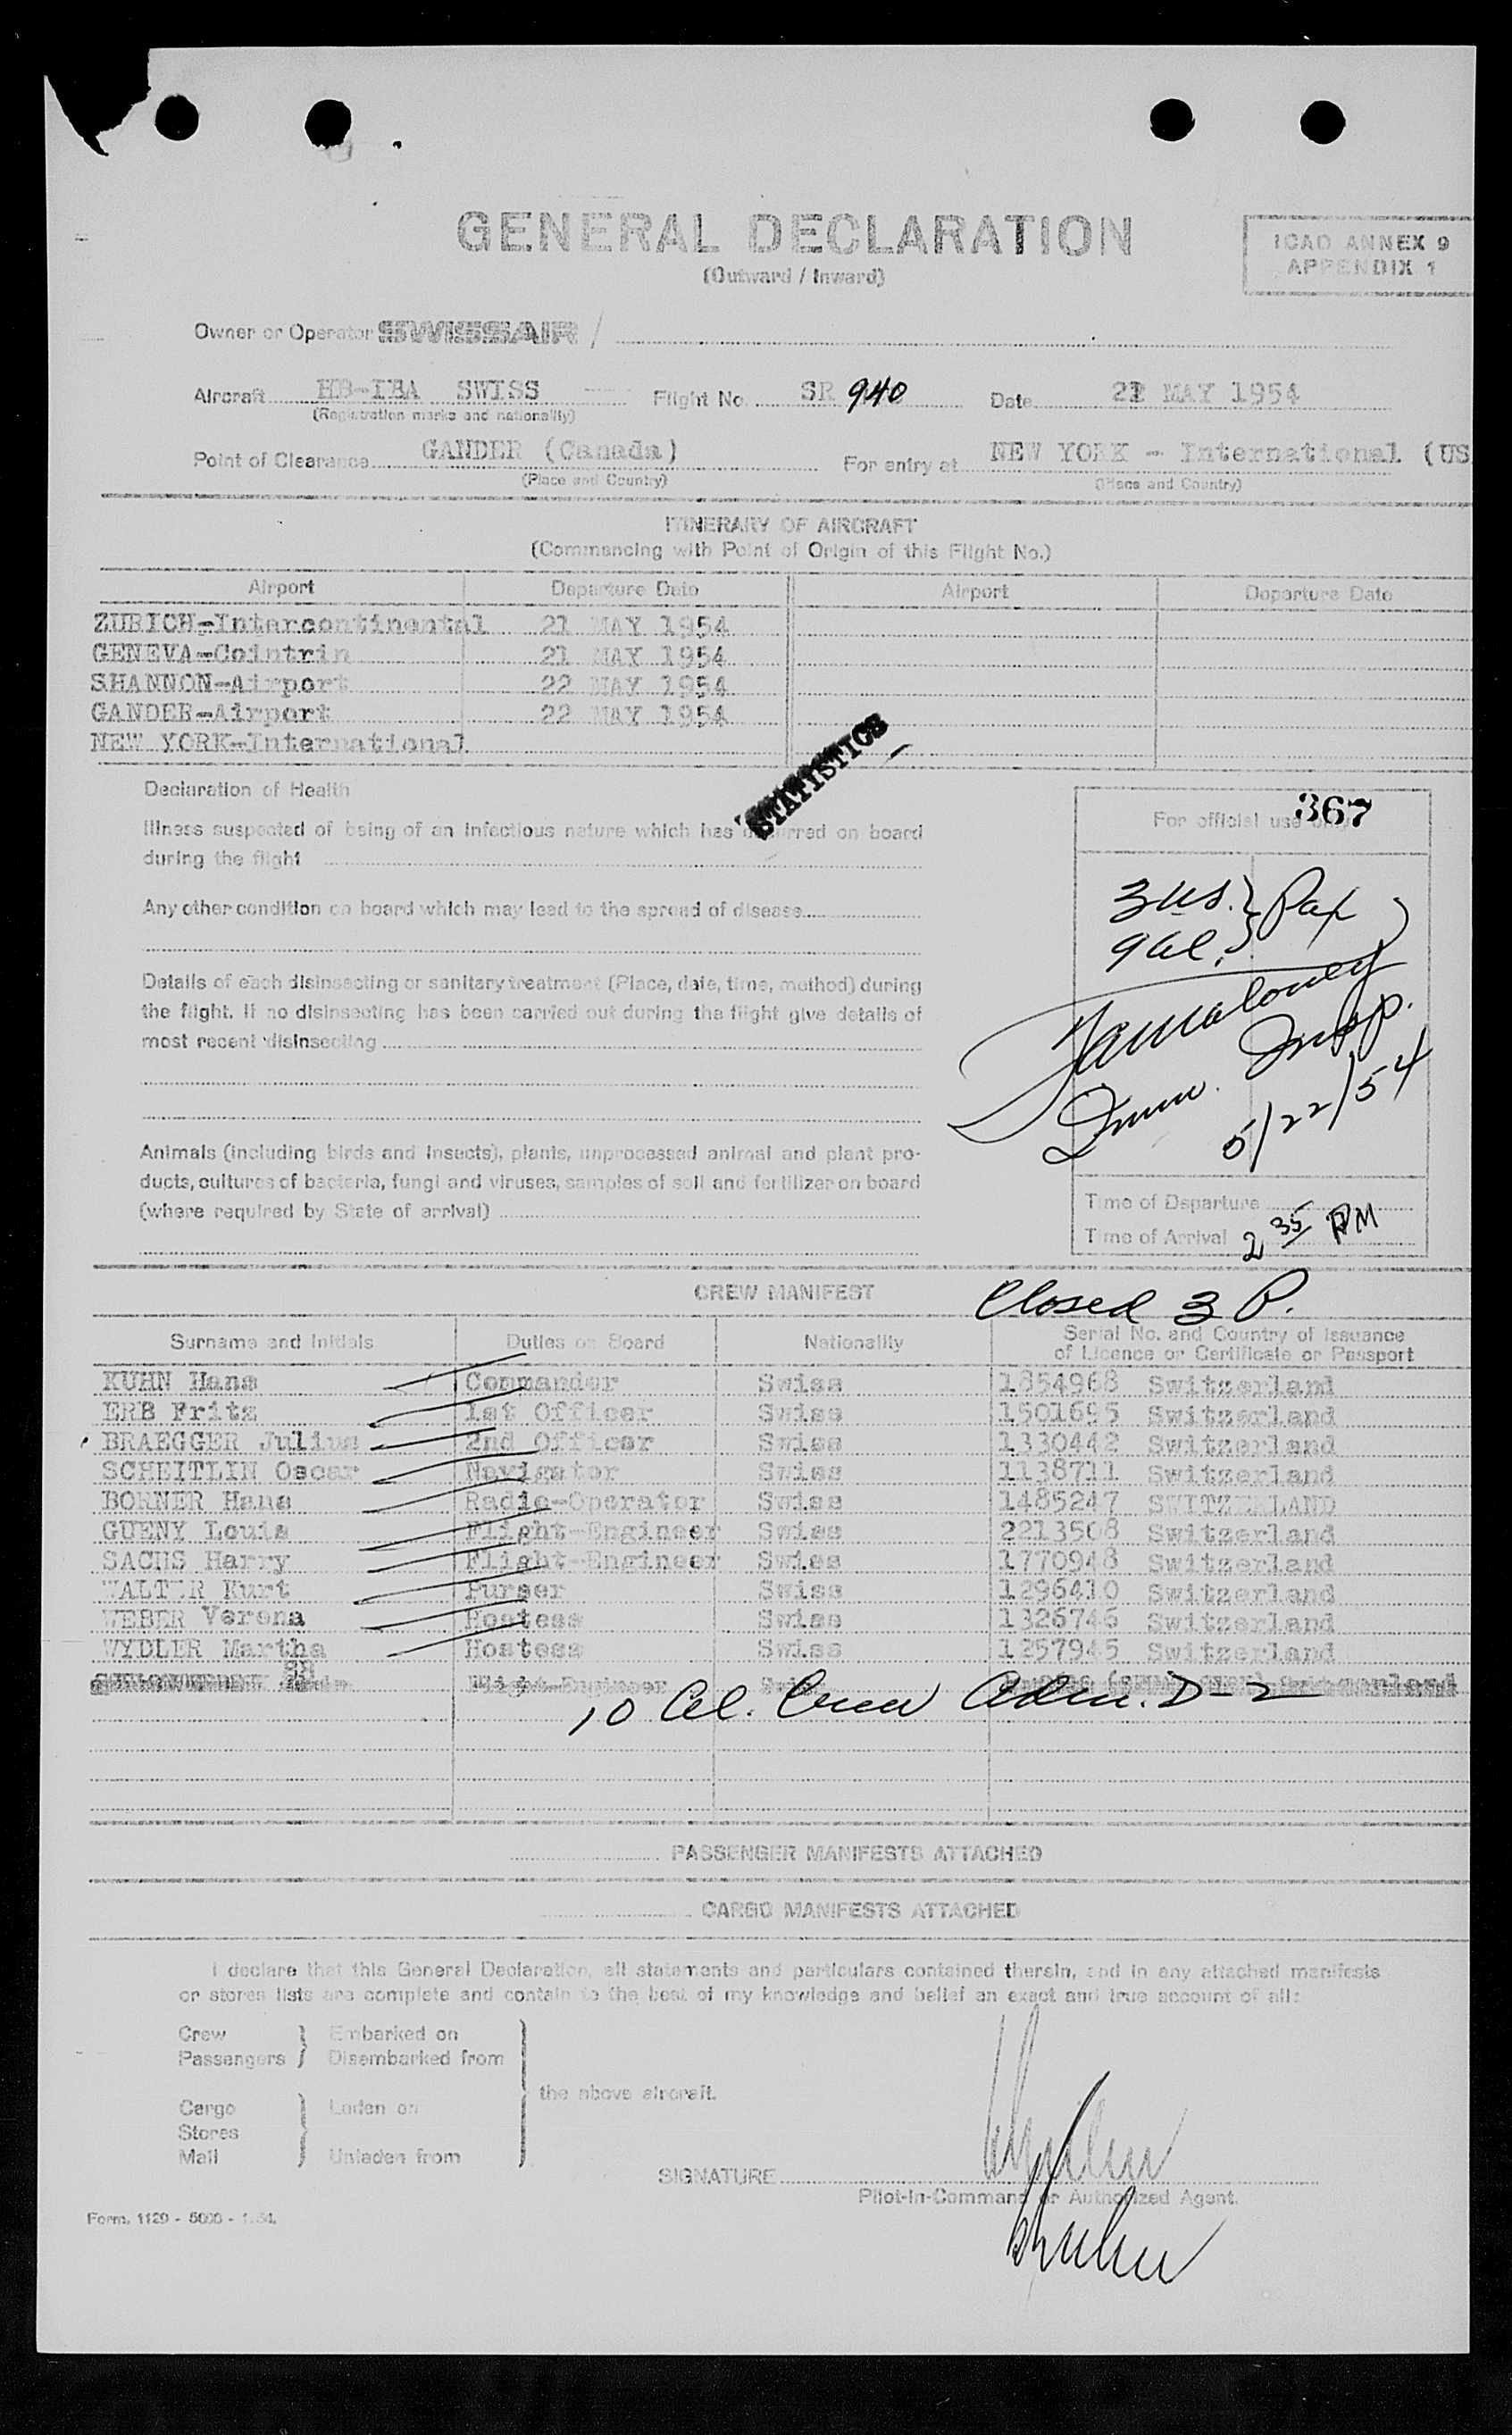 GENERAL DECLARATION
(Outward / Inward)
ICAO ANNEX 9
APPENDIX 1
Owner or Operator SWISSAIR /
Aircraft HB-IBA SWISS Flight No. SR 940 Date 22 MAY 1954
(Registration marks and nationality)
Point of Clearance GANDER (Canada) For entry at NEW YORK - International (US
(Place and Country) (Place and Country)
ITINERARY OF AIRCRAFT
(Commencing with Point of Origin of this Flight No.)
Airport Departure Date Airport Departure Date
ZURICH-Intercontinental 21 MAY 1954
GENEVA-Cointrin 21 MAY 1954
SHANNON-Airport 22 MAY 1954
GANDER-Airport 22 MAY 1954
NEW YORK-International
STATISTICS
Declaration of Health
Illness suspected of being of an infectious nature which has occurred on board
during the flight
Any other condition on board which may lead to the spread of disease
Details of each disinsecting or sanitary treatment (Place, date, time, method) during
the flight. If no disinsecting has been carried out during the flight give details of
most recent disinsecting
Animals (including birds and insects), plants, unprocessed animal and plant pro-
ducts, cultures of bacteria, fungi and viruses, samples of soil and fertilizer on board
(where required by State of arrival)
For official use only
367
3 us. } Pax
9 al.
Imm. Insp.
5/22/54
Time of Departure
Time of Arrival 2 35 PM
CREW MANIFEST
Closed 3 P.
Surname and Initials Duties on Board Nationality Serial No. and Country of Issuance
of Licence or Certificate or Passport
KUHN Hans Commander Swiss 1854968 Switzerland
ERB Fritz 1st Officer Swiss 1501695 Switzerland
BRAEGGER Julius 2nd Officer Swiss 1330442 Switzerland
SCHEITLIN Oscar Navigator Swiss 1138711 Switzerland
BORNER Hans Radio-Operator Swiss 1485247 SWITZERLAND
GUENY Louis Flight-Engineer Swiss 2213508 Switzerland
SACHS Harry Flight-Engineer Swiss 1770948 Switzerland
WALTER Kurt Purser Swiss 1296410 Switzerland
WEBER Verena Hostess Swiss 1326746 Switzerland
WYDLER Martha Hostess Swiss 1257945 Switzerland
Flight-Engineer
10 al. Crew Adm. D-2
PASSENGER MANIFESTS ATTACHED
CARGO MANIFESTS ATTACHED
I declare that this General Declaration, all statements and particulars contained therein, and in any attached manifests
or stores lists are complete and contain to the best of my knowledge and belief an exact and true account of all:
Crew } Embarked on
Passengers } Disembarked from
the above aircraft.
Cargo Laden on
Stores
Mail Unladen from
SIGNATURE
Pilot-in-Command or Authorized Agent.
Form. 1129 - 5000 - 1.54.